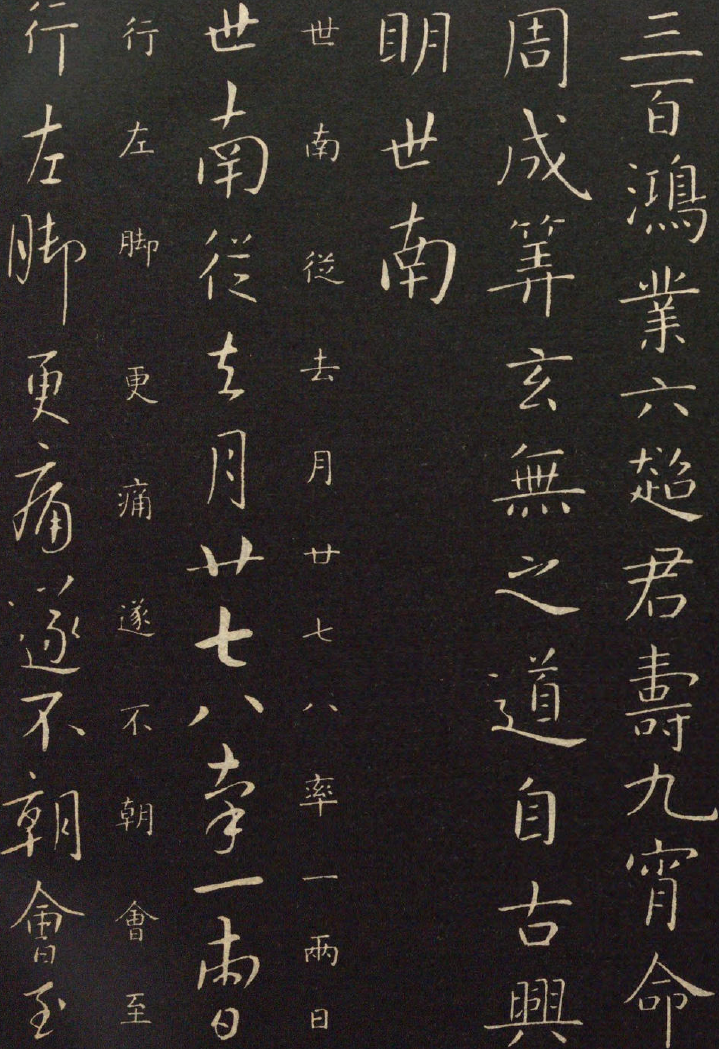 三百鴻業六超君壽九霄命
周成筭玄無之道自古興
明世南
世南從去月廿七八率一兩日
世南從去月廿七八率一兩日
行左脚更痛遂不朝會至
行左脚更痛遂不朝會至